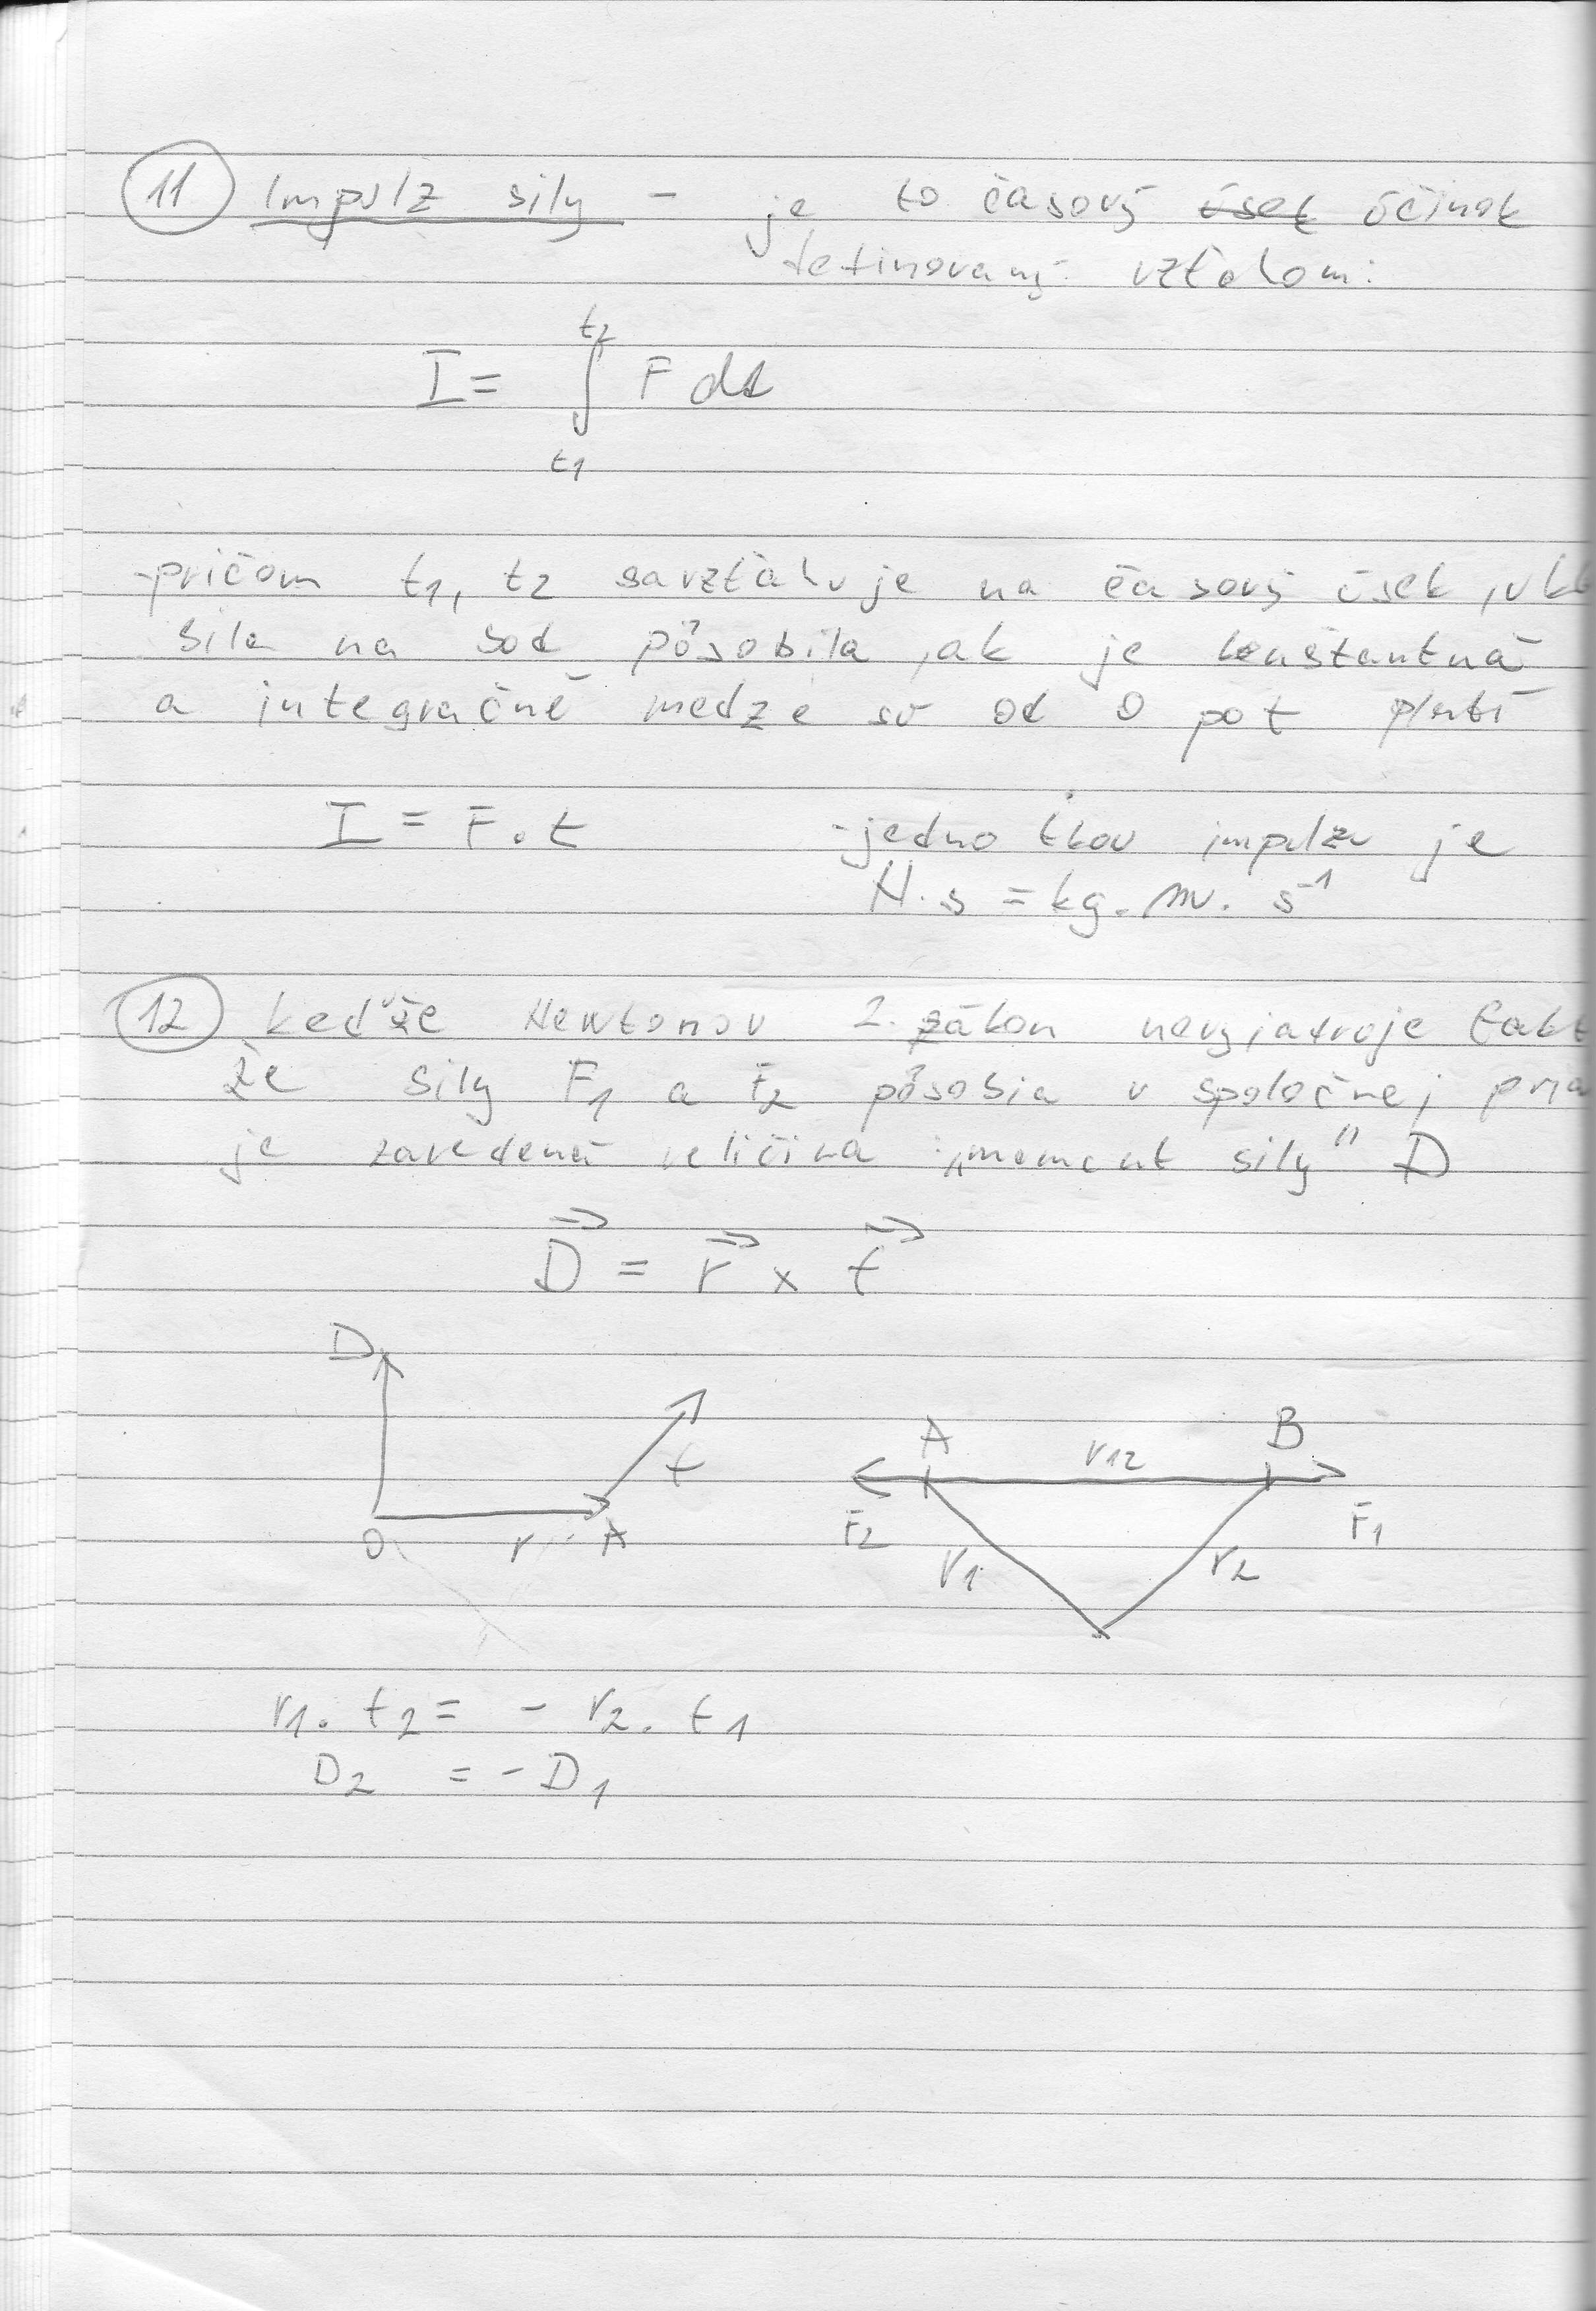 11 Impulz sily - je to časový úsek účinok
definovaný vzťahom:
t2
I = ∫ F dt
t1
-pričom t1, t2 sa vzťahuje na časový úsek, v k
sila na bod pôsobila, ak je konštantná
a integračné medze sú od 0 po t platí
I = F. t -jednotkou impulzu je
N. s = kg. m. s⁻¹
12 keďže Newtonov 2. zákon nevyjadruje fakt
že sily F1 a F2 pôsobia v spoločnej pria
je zavedená veličina "moment sily" D
D = r x f
D
A r12 B
f
F2 F1
0 r A r1 r2
r1. f2 = - r2. f1
D2 = - D1